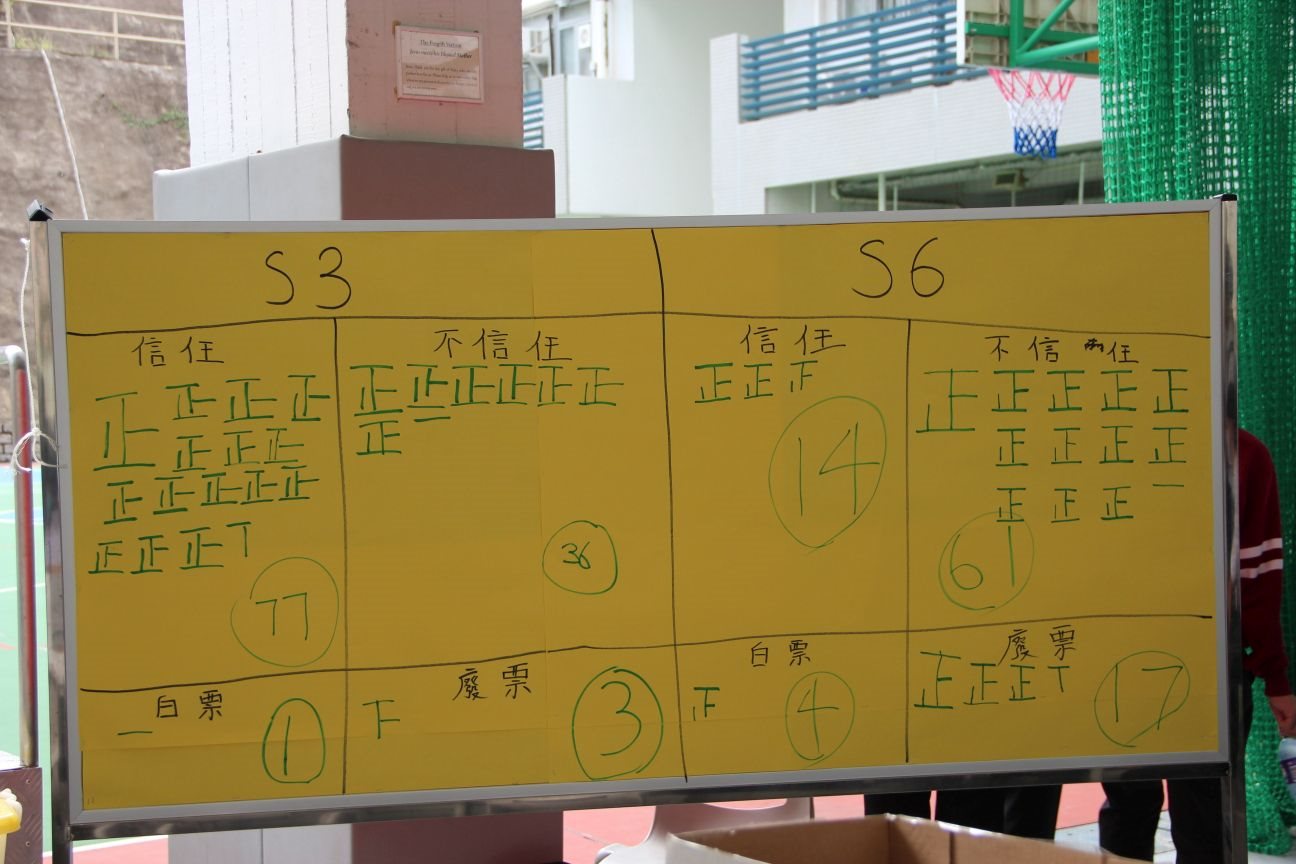 The Fought Station
S3
S6
信任
不信任
信任
不信任
正正正正
正正正正正正
正正正
正正正正正
正正正
正
正正正正
正正正正正
正正正
一
正正正丅
14
36
61
77
白票
廢票
白票
廢票
一
下
正
正正正丅
1
3
4
17